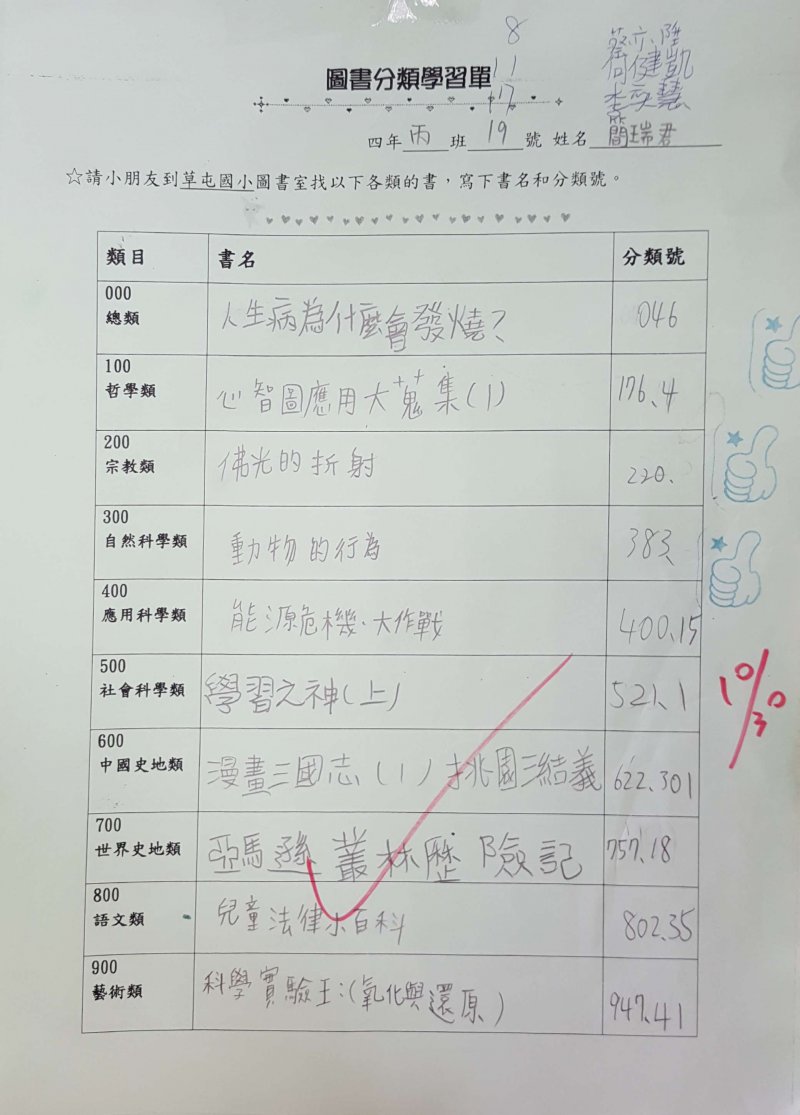 8
11
17
蔡亦陞
周健凱
李奕慧
圖書分類學習單
四年丙班19號 姓名簡瑞君
☆請小朋友到草屯國小圖書室找以下各類的書，寫下書名和分類號。
類目 書名 分類號
000
總類 人生病為什麼會發燒？ 046
100
哲學類 心智圖應用大蒐集(1) 176.4
200
宗教類 佛光的折射 220.
300
自然科學類 動物的行為 383.
400
應用科學類 能源危機．大作戰 400.15
500
社會科學類 學習之神(上) 521.1
600
中國史地類 漫畫三國志(1)桃園三結義 622.301
700
世界史地類 亞馬遜叢林歷險記 757.18
800
語文類 兒童法律小百科 802.35
900
藝術類 科學實驗王：(氧化與還原) 947.41
10/30